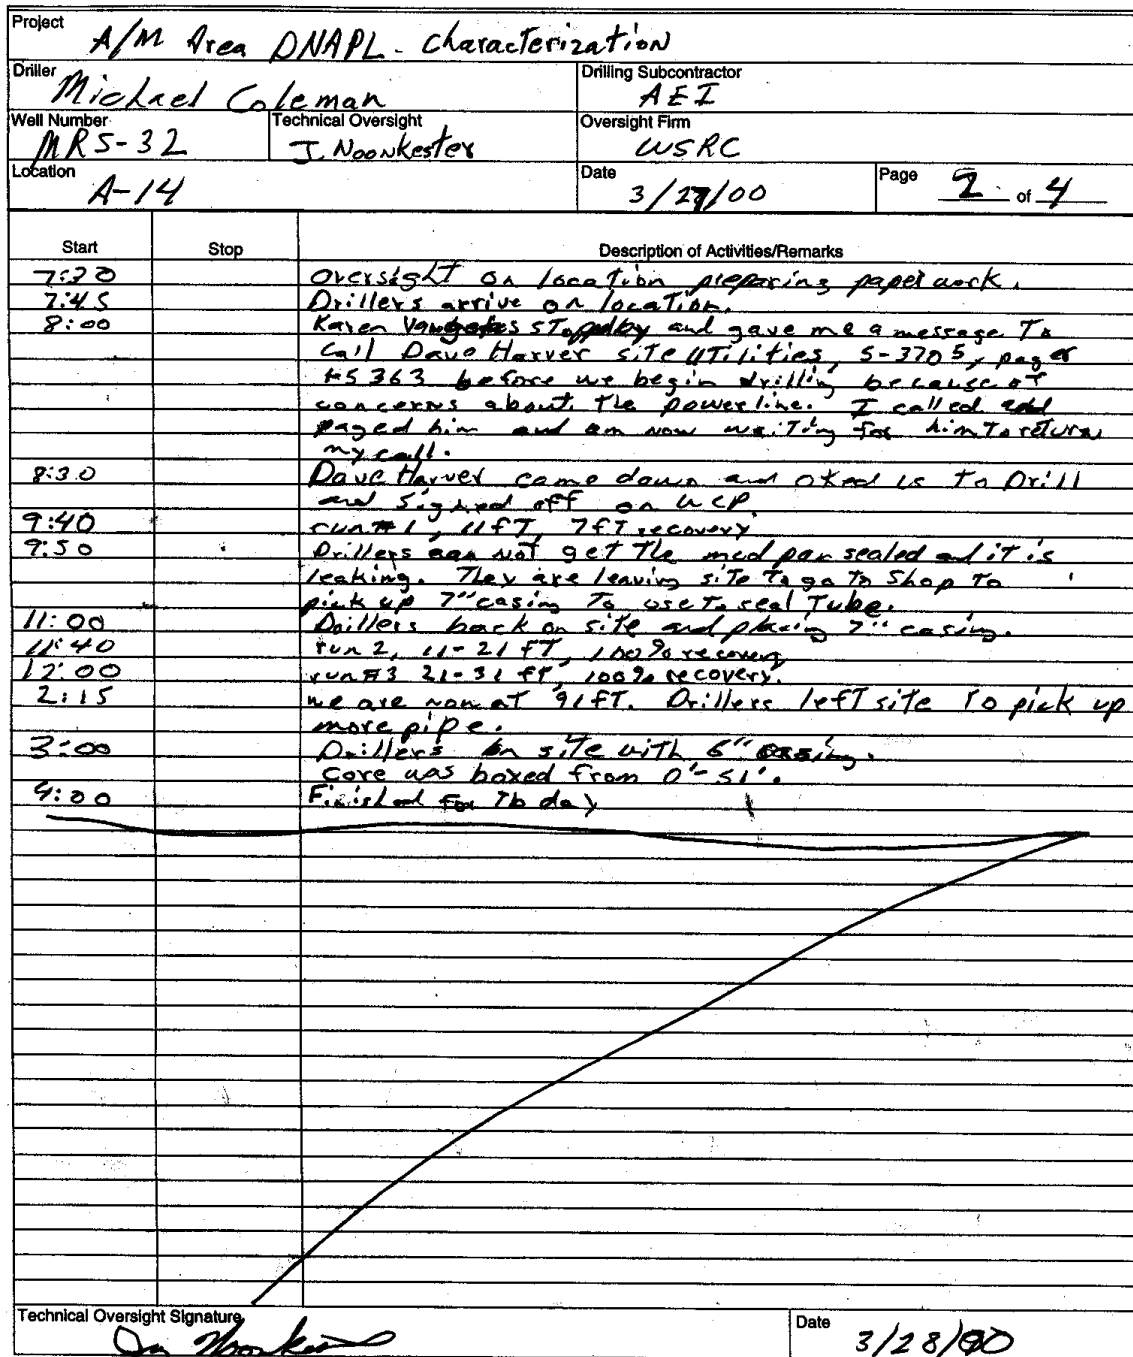 Project
A/M Area DNAPL - Characterization
Driller
Michael Coleman
Drilling Subcontractor
AEI
Well Number
MRS-32
Technical Oversight
J. Noonkester
Oversight Firm
WSRC
Location
A-14
Date
3/27/00
Page 2 of 4
Start Stop Description of Activities/Remarks
7:30 oversight on location preparing paperwork.
7:45 Drillers arrive on location.
8:00 Karen stopped by and gave me a message To
Call Dave Harver site UTilities, 5-3705, pager
#5363 before we begin drilling because of
concerns about the powerline. I called and
paged him and am now waiTing for him To return
my call.
8:30 Dave Harver came down and oked us To Drill
and signed off on WCP.
9:40 run #1, 11 fT, 7 fT recovery
9:50 Drillers can not get The mud pan sealed and it is
leaking. They are leaving siTe To go To Shop To
pick up 7" casing To use To seal Tube.
11:00 Drillers back on site and placing 7" casing.
11:40 run 2, 11-21 fT, 100% recovery
12:00 run #3 21-31 fT, 100% recovery.
2:15 we are now at 91 fT. Drillers left site To pick up
more pipe.
3:00 Drillers on site with 6" casing.
Core was boxed from 0'-51'.
4:00 Finished for The day
Technical Oversight Signature
Date
3/28/00